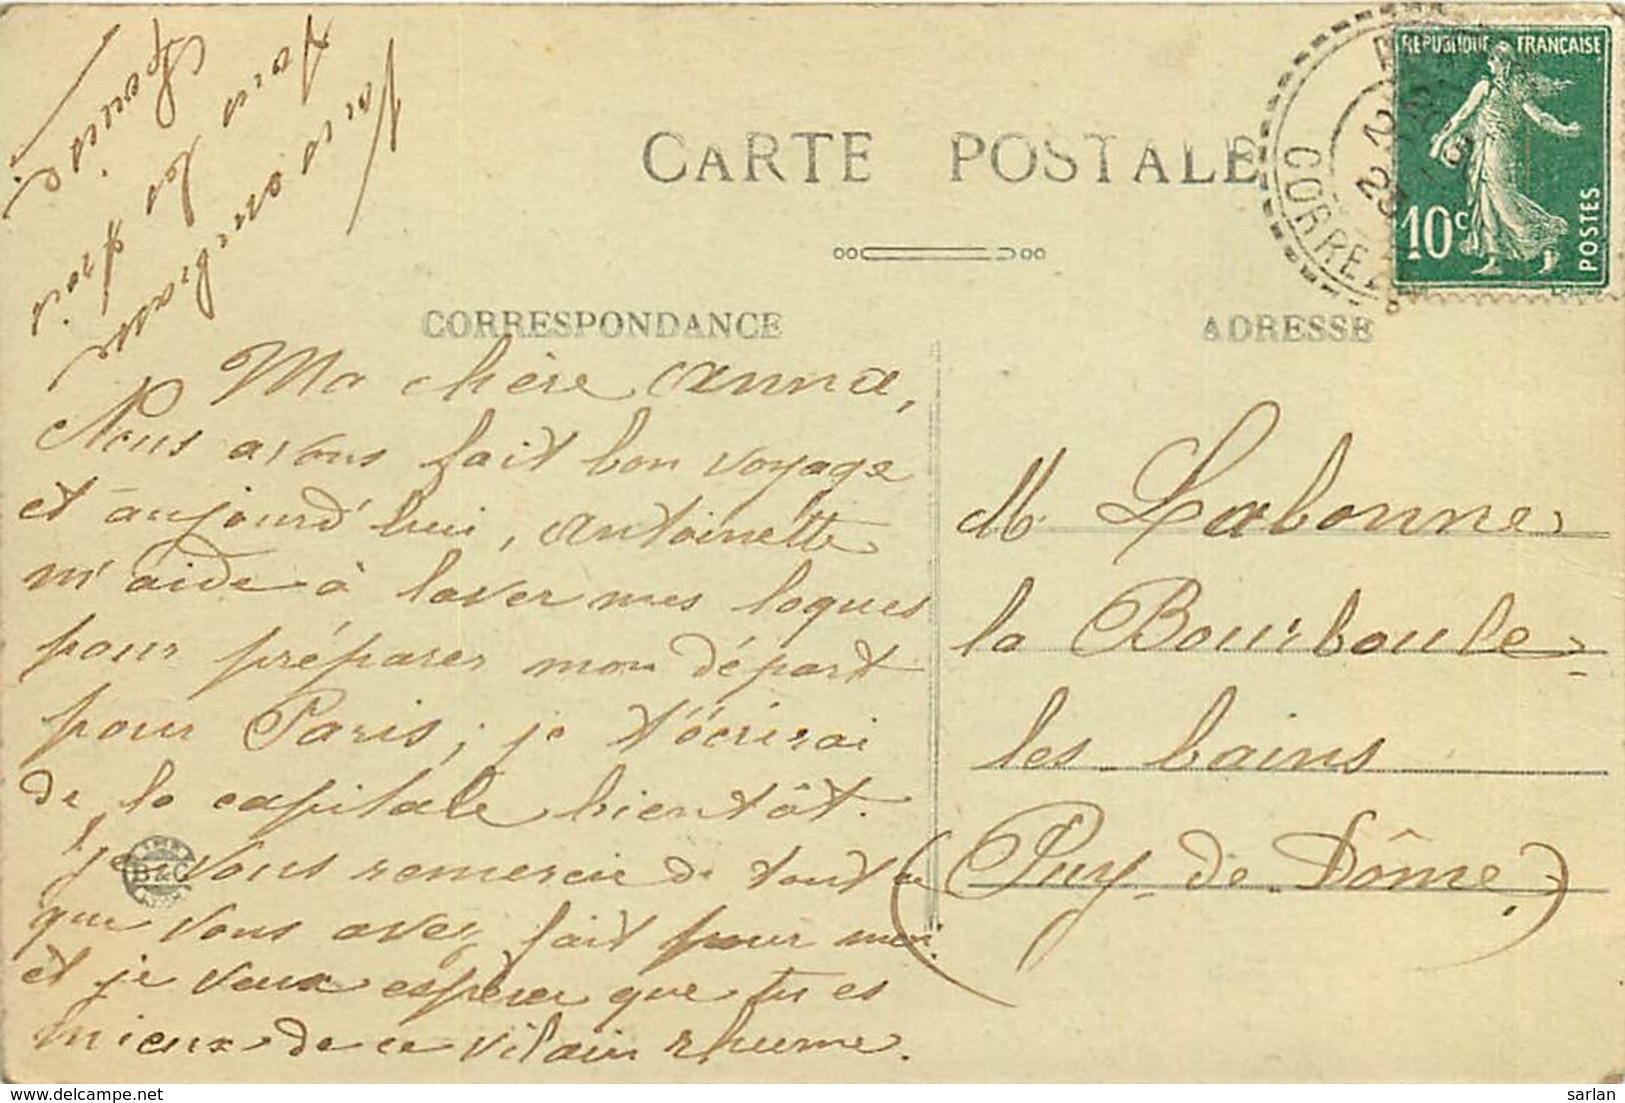 CARTE POSTALE
CORRESPONDANCE
ADRESSE
REPUBLIQUE FRANÇAISE
10c
POSTES
CORRE
Ma chère Anna,
Nous avons fait bon voyage
et aujourd'hui, Antoinette
m'aide à laver mes loques
pour préparer mon départ
pour Paris; je t'écrirai
de la capitale bientôt.
Je vous remercie de tout ce
que vous avez fait pour moi
et je veux espérer que tu es
mieux de ce vilain rhume.
Vous embrasse
tous les trois
B&C
M. Labonne
la Bourboule-
les bains
(Puy-de-Dôme)
sarlan